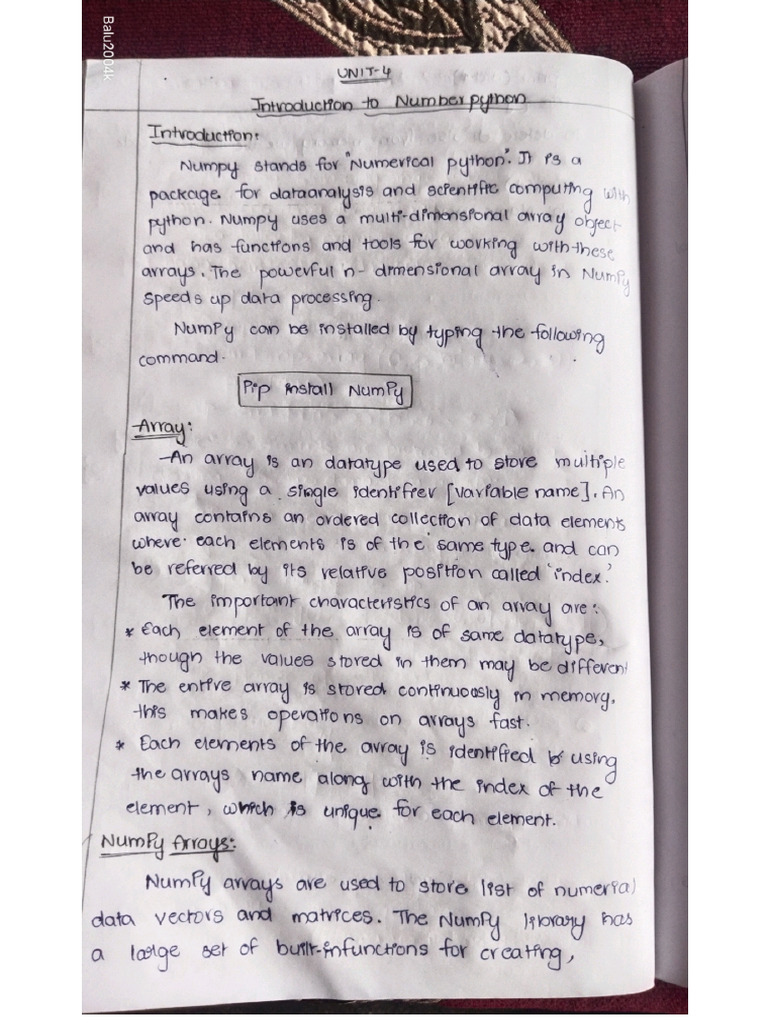 Balu2004k
UNIT-4
Introduction to Number python
Introduction:
Numpy stands for "Numerical python". It is a
package for dataanalysis and scientific computing with
python. Numpy uses a multi-dimensional array object
and has functions and tools for working with these
arrays. The powerful n-dimensional array in NumPy
speeds up data processing.
NumPy can be installed by typing the following
command.
Pip install NumPy
Array:
An array is an datatype used to store multiple
values using a single identifier [variable name]. An
array contains an ordered collection of data elements
where each elements is of the same type and can
be referred by its relative position called 'index'.
The important characteristics of an array are:
* Each element of the array is of same datatype,
though the values stored in them may be different
* The entire array is stored continuously in memory,
this makes operations on arrays fast.
* Each elements of the array is identified by using
the arrays name along with the index of the
element, which is unique for each element.
NumPy Arrays:
NumPy arrays are used to store list of numerial
data vectors and matrices. The NumPy library has
a large set of built-infunctions for creating,